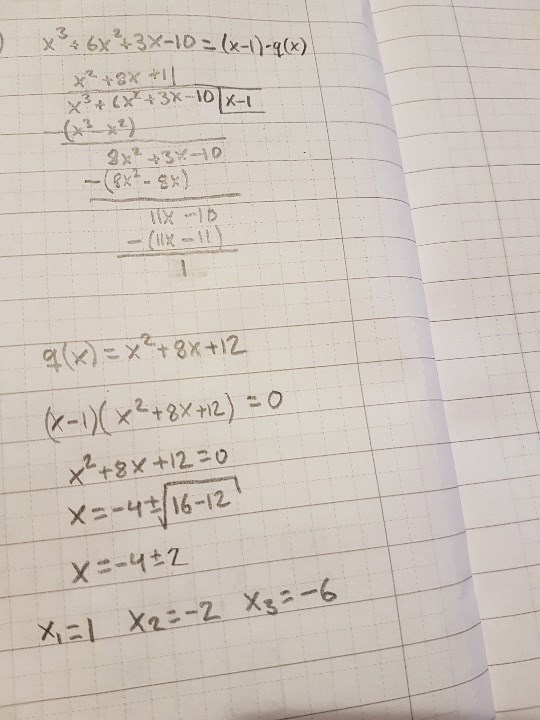 ) x³ + 6x² + 3x - 10 = (x-1)·q(x)
x² + 8x + 11
x³ + 6x² + 3x - 10 | x-1
-(x³ - x²)
8x² + 3x - 10
-(8x² - 8x)
11x - 10
-(11x - 11)
1
q(x) = x² + 8x + 12
(x-1)(x² + 8x + 12) = 0
x² + 8x + 12 = 0
x = -4 ± √16-12
x = -4 ± 2
x₁ = 1 x₂ = -2 x₃ = -6